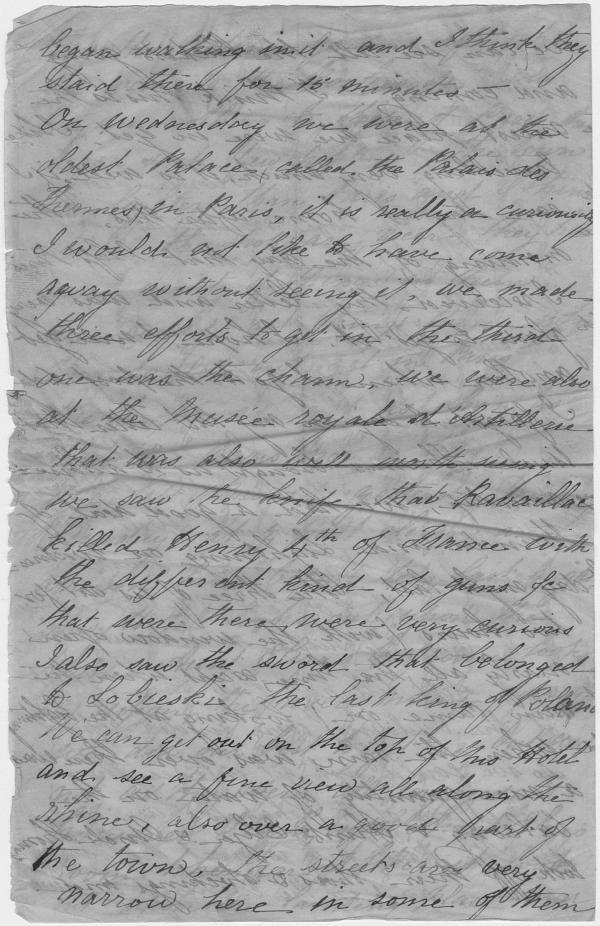 began walking in it and I think they
staid there for 15 minutes —
On Wednesday we were at the
oldest Palace, called the Palais des
Thermes, in Paris, it is really a curiousity
I would not like to have come
away without seeing it, we made
three efforts to get in the third
one was the charm, we were also
at the Musée royale d'Artillerie
that was also well worth seeing
we saw the knife that Ravaillac
killed Henry 4th of France with
the different kind of guns &c
that were there, were very curious
I also saw the sword that belonged
to Sobieski the last king of Poland
We can get out on the top of this Hotel
and see a fine view all along the
Rhine, also over a good part of
the town, the streets are very
narrow here in some of them